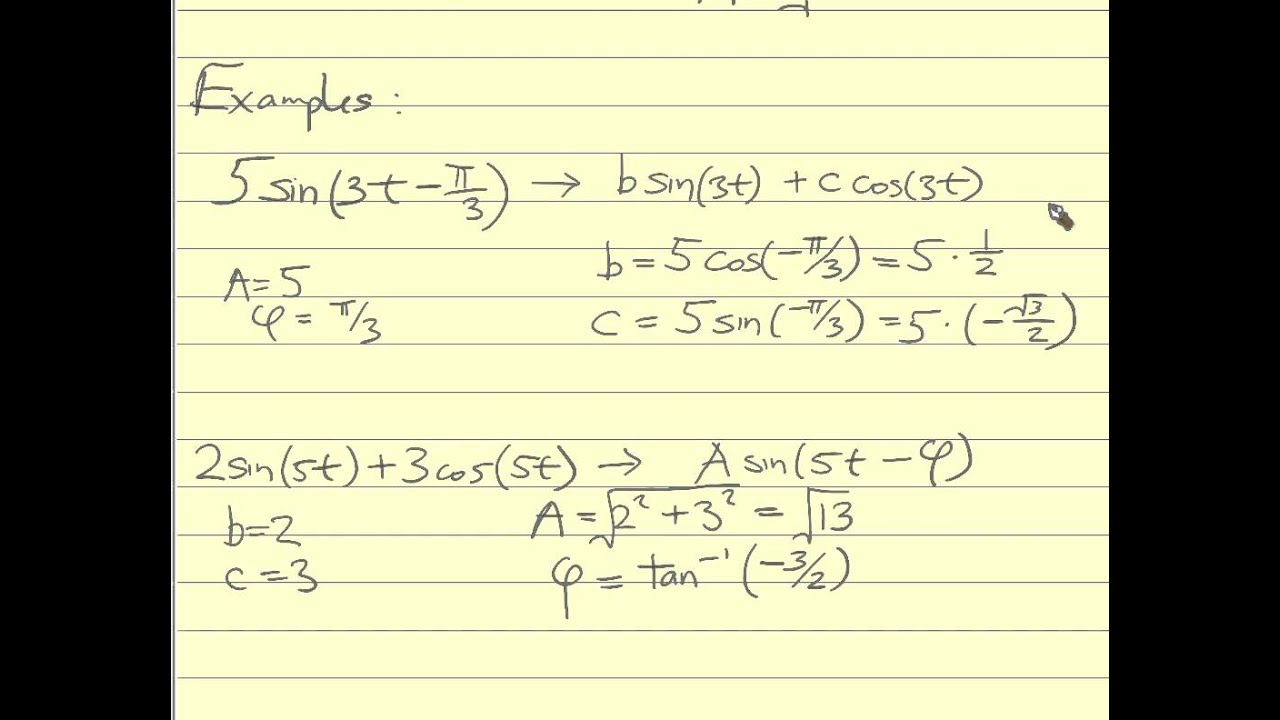 Examples:
5 sin(3t - π/3) → b sin(3t) + c cos(3t)
A = 5
φ = π/3
b = 5 cos(-π/3) = 5 · 1/2
c = 5 sin(-π/3) = 5 · (-√3/2)
2 sin(5t) + 3 cos(5t) → A sin(5t - φ)
b = 2
c = 3
A = √(2² + 3²) = √13
φ = tan⁻¹(-3/2)